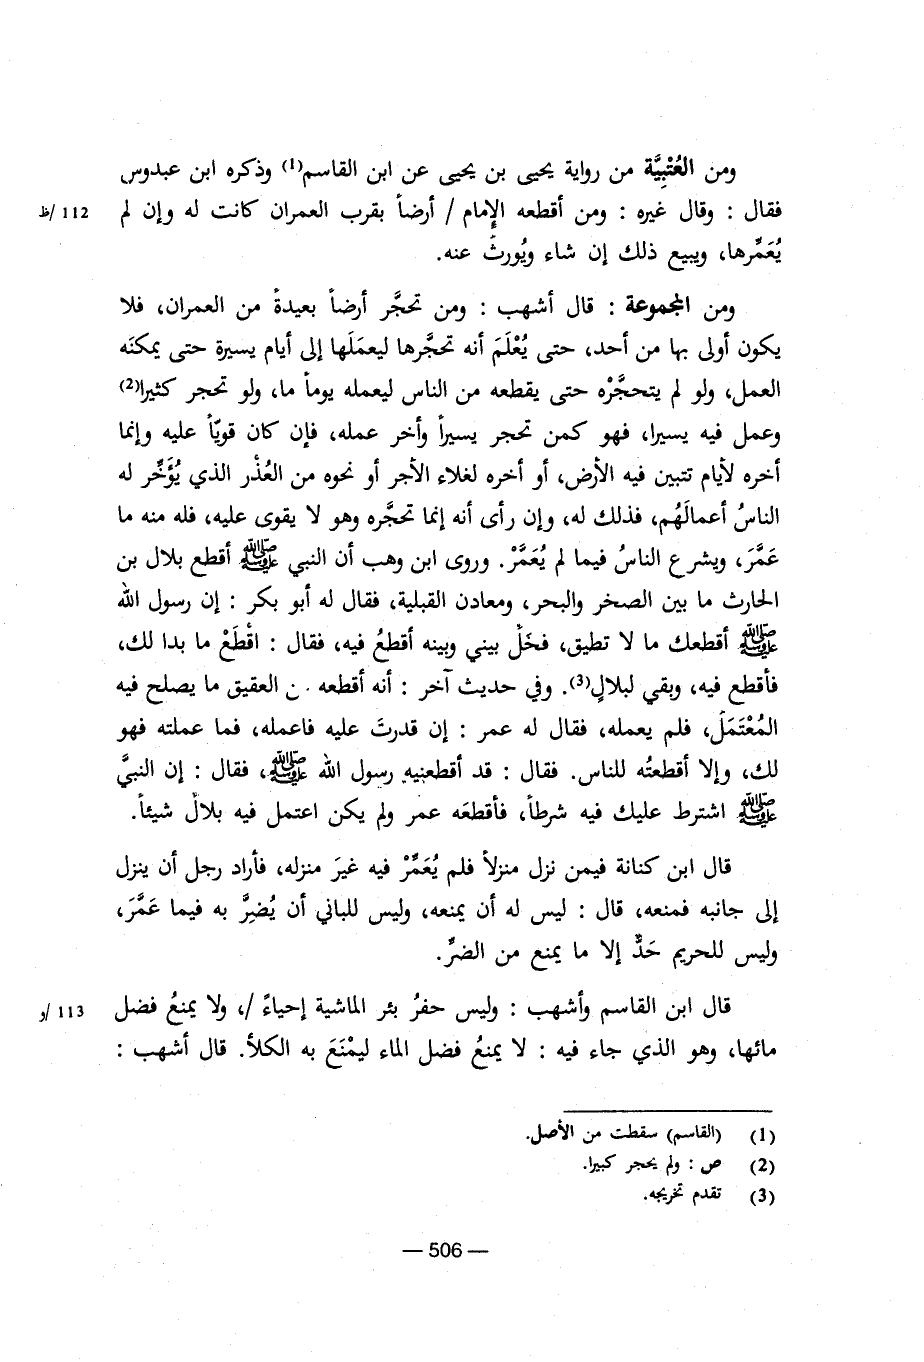 ومن العُتْبِيَّة من رواية يحيى بن يحيى عن ابن القاسم(1) وذكره ابن عبدوس
فقال : وقال غيره : ومن أقطعه الإمام / أرضاً بقرب العمران كانت له وإن لم 112 /ظ
يُعَمِّرها، ويبيع ذلك إن شاء ويُورثُ عنه.
ومن المجموعة : قال أشهب : ومن تحجَّر أرضاً بعيدةً من العمران، فلا
يكون أولى بها من أحد، حتى يُعْلَمَ أنه تحجَّرها ليعمَلَها إلى أيام يسيرة حتى يمكنَه
العمل، ولو لم يتحجَّرْه حتى يقطعه من الناس ليعمله يوماً ما، ولو تحجر كثيرا(2)
وعمل فيه يسيرا، فهو كمن تحجر يسيراً وأخر عمله، فإن كان قويّاً عليه وإنما
أخره لأيام تتبين فيه الأرض، أو أخره لغلاء الأجر أو نحوه من العُذْر الذي يُؤَخِّر له
الناسُ أعمالَهُم، فذلك له، وإن رأى أنه إنما تحجَّره وهو لا يقوى عليه، فله منه ما
عَمَّرَ، ويشرع الناسُ فيما لم يُعَمَّرْ. وروى ابن وهب أن النبي ﷺ أقطع بلال بن
الحارث ما بين الصخر والبحر، ومعادن القبلية، فقال له أبو بكر : إن رسول الله
ﷺ أقطعك ما لا تطيق، فخَلِّ بيني وبينه أقطعُ فيه، فقال : اقْطَعْ ما بدا لك،
فأقطع فيه، وبقي لبلالٍ(3). وفي حديث آخر : أنه أقطعه من العقيق ما يصلح فيه
المُعْتَمَلُ، فلم يعمله، فقال له عمر : إن قدرتَ عليه فاعمله، فما عملته فهو
لك، وإلا أقطعتُه للناس. فقال : قد أقطعنيه رسول الله ﷺ، فقال : إن النبيَّ
ﷺ اشترط عليك فيه شرطاً، فأقطعَه عمر ولم يكن اعتمل فيه بلالٌ شيئاً.
قال ابن كنانة فيمن نزل منزلاً فلم يُعَمِّرْ فيه غيرَ منزله، فأراد رجل أن ينزل
إلى جانبه فمنعه، قال : ليس له أن يمنعه، وليس للباني أن يُضِرَّ به فيما عَمَّرَ،
وليس للحريم حَدٌّ إلا ما يمنع من الضرِّ.
قال ابن القاسم وأشهب : وليس حفرُ بئر الماشية إحياءً /، ولا يمنعُ فضل 113 /و
مائها، وهو الذي جاء فيه : لا يمنعُ فضل الماء ليمْنَعَ به الكلأ. قال أشهب :
(1) (القاسم) سقطت من الأصل.
(2) ص : ولم يحجر كبيرا.
(3) تقدم تخريجه.
— 506 —